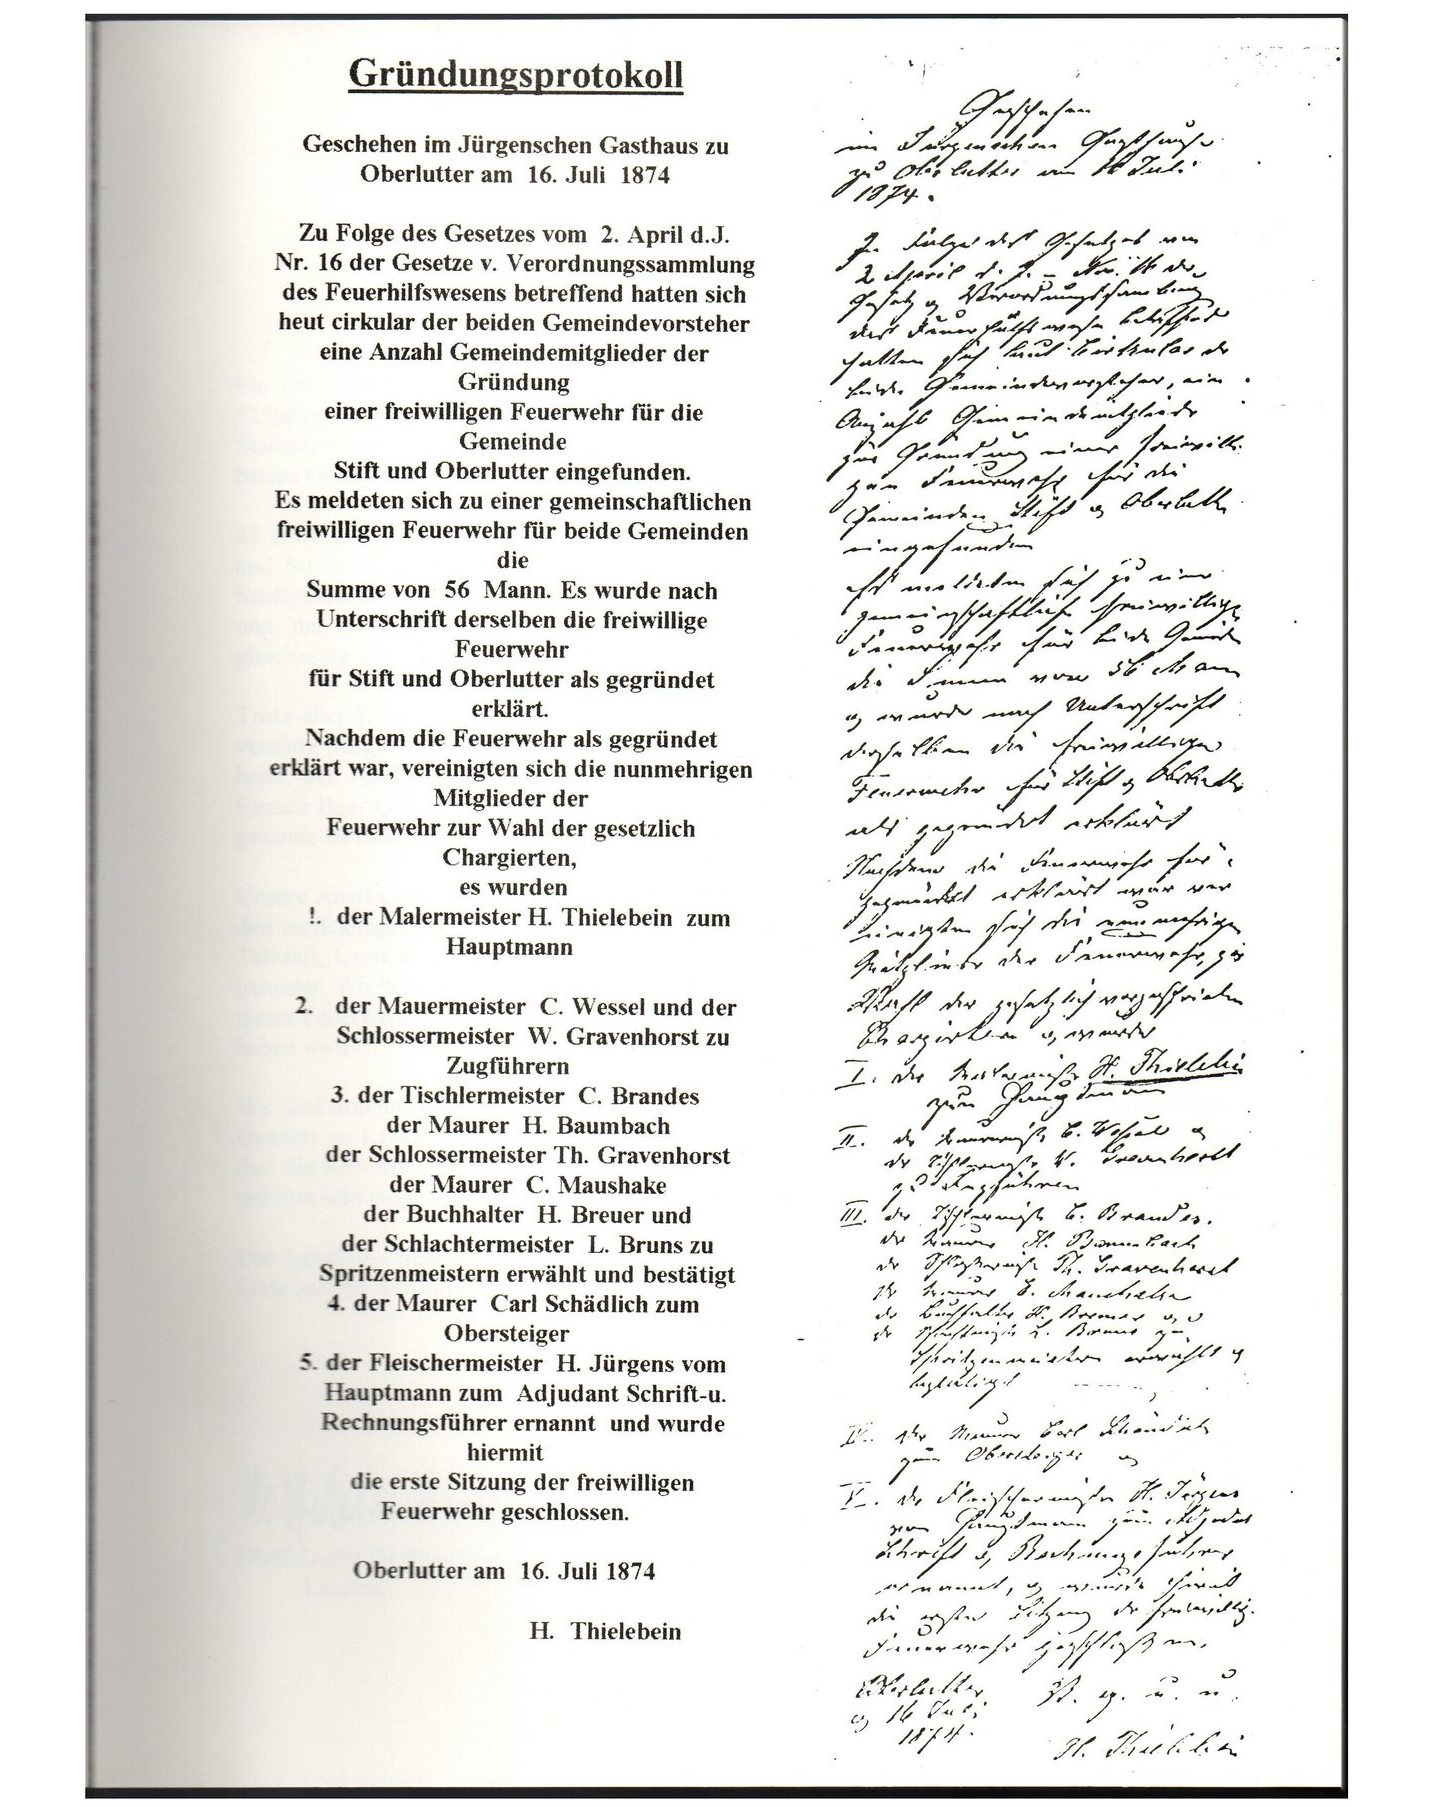 Gründungsprotokoll
Geschehen im Jürgenschen Gasthaus zu
Oberlutter am 16. Juli 1874
Zu Folge des Gesetzes vom 2. April d.J.
Nr. 16 der Gesetze v. Verordnungssammlung
des Feuerhilfswesens betreffend hatten sich
heut cirkular der beiden Gemeindevorsteher
eine Anzahl Gemeindemitglieder der
Gründung
einer freiwilligen Feuerwehr für die
Gemeinde
Stift und Oberlutter eingefunden.
Es meldeten sich zu einer gemeinschaftlichen
freiwilligen Feuerwehr für beide Gemeinden
die
Summe von 56 Mann. Es wurde nach
Unterschrift derselben die freiwillige
Feuerwehr
für Stift und Oberlutter als gegründet
erklärt.
Nachdem die Feuerwehr als gegründet
erklärt war, vereinigten sich die nunmehrigen
Mitglieder der
Feuerwehr zur Wahl der gesetzlich
Chargierten,
es wurden
!. der Malermeister H. Thielebein zum
Hauptmann
2. der Mauermeister C. Wessel und der
Schlossermeister W. Gravenhorst zu
Zugführern
3. der Tischlermeister C. Brandes
der Maurer H. Baumbach
der Schlossermeister Th. Gravenhorst
der Maurer C. Maushake
der Buchhalter H. Breuer und
der Schlachtermeister L. Bruns zu
Spritzenmeistern erwählt und bestätigt
4. der Maurer Carl Schädlich zum
Obersteiger
5. der Fleischermeister H. Jürgens vom
Hauptmann zum Adjudant Schrift-u.
Rechnungsführer ernannt und wurde
hiermit
die erste Sitzung der freiwilligen
Feuerwehr geschlossen.
Oberlutter am 16. Juli 1874
H. Thielebein
Geschehen
im Jürgenschen Gasthause
zu Oberlutter am 16 Juli
1874.
Folge des Gesetzes vom
2 April d. J. – Nro. 16 der
Gesetz u Verordnungssammlung
das Feuerhülfswesen betreffend
hatten sich laut Cirkular der
beiden Gemeindevorsteher, eine
Anzahl Gemeindemitglieder
zur Gründung einer freiwilli-
gen Feuerwehr für die
Gemeinden Stift u Oberlutter
eingefunden
Es meldeten sich zu einer
gemeinschaftlich freiwilligen
Feuerwehr für beide Gemeinden
die Summe von 56 Mann
u wurde nach Unterschrift
derselben die freiwillige
Feuerwehr für Stift u Oberlutter
als gegründet erklärt
Nachdem die Feuerwehr für
gegründet erklärt war ver
einigten sich die nunmehrigen
Mitglieder der Feuerwehr, zur
Wahl der gesetzlich vorgeschrieben
Chargirten u, wurde
I. der Malermeister H. Thielebein
zum Hauptmann
II. der Maurermeister C. Wessel u
der W. Gravenhorst
zu Zugführern
III. der Tischlermeister C. Brandes.
der Maurer H. Baumbach
der Schlossermeister Th. Gravenhorst
der Maurer C. Maushake
der Buchhalter H. u
der L. Bruns zu
Spritzenmeistern erwählt u
bestätigt
IV. der Maurer Carl Schädlich
zum Obersteiger u
V. der Fleischermeister H. Jürgens
vom Hauptmann zum Adjudant
Schrift u, Rechnungsführer
ernannt, u wurde hiermit
die erste Sitzung der freiwillig.
Feuerwehr geschlossen.
Oberlutter V. g. u. u.
16 Juli
1874.
H. Thielebein